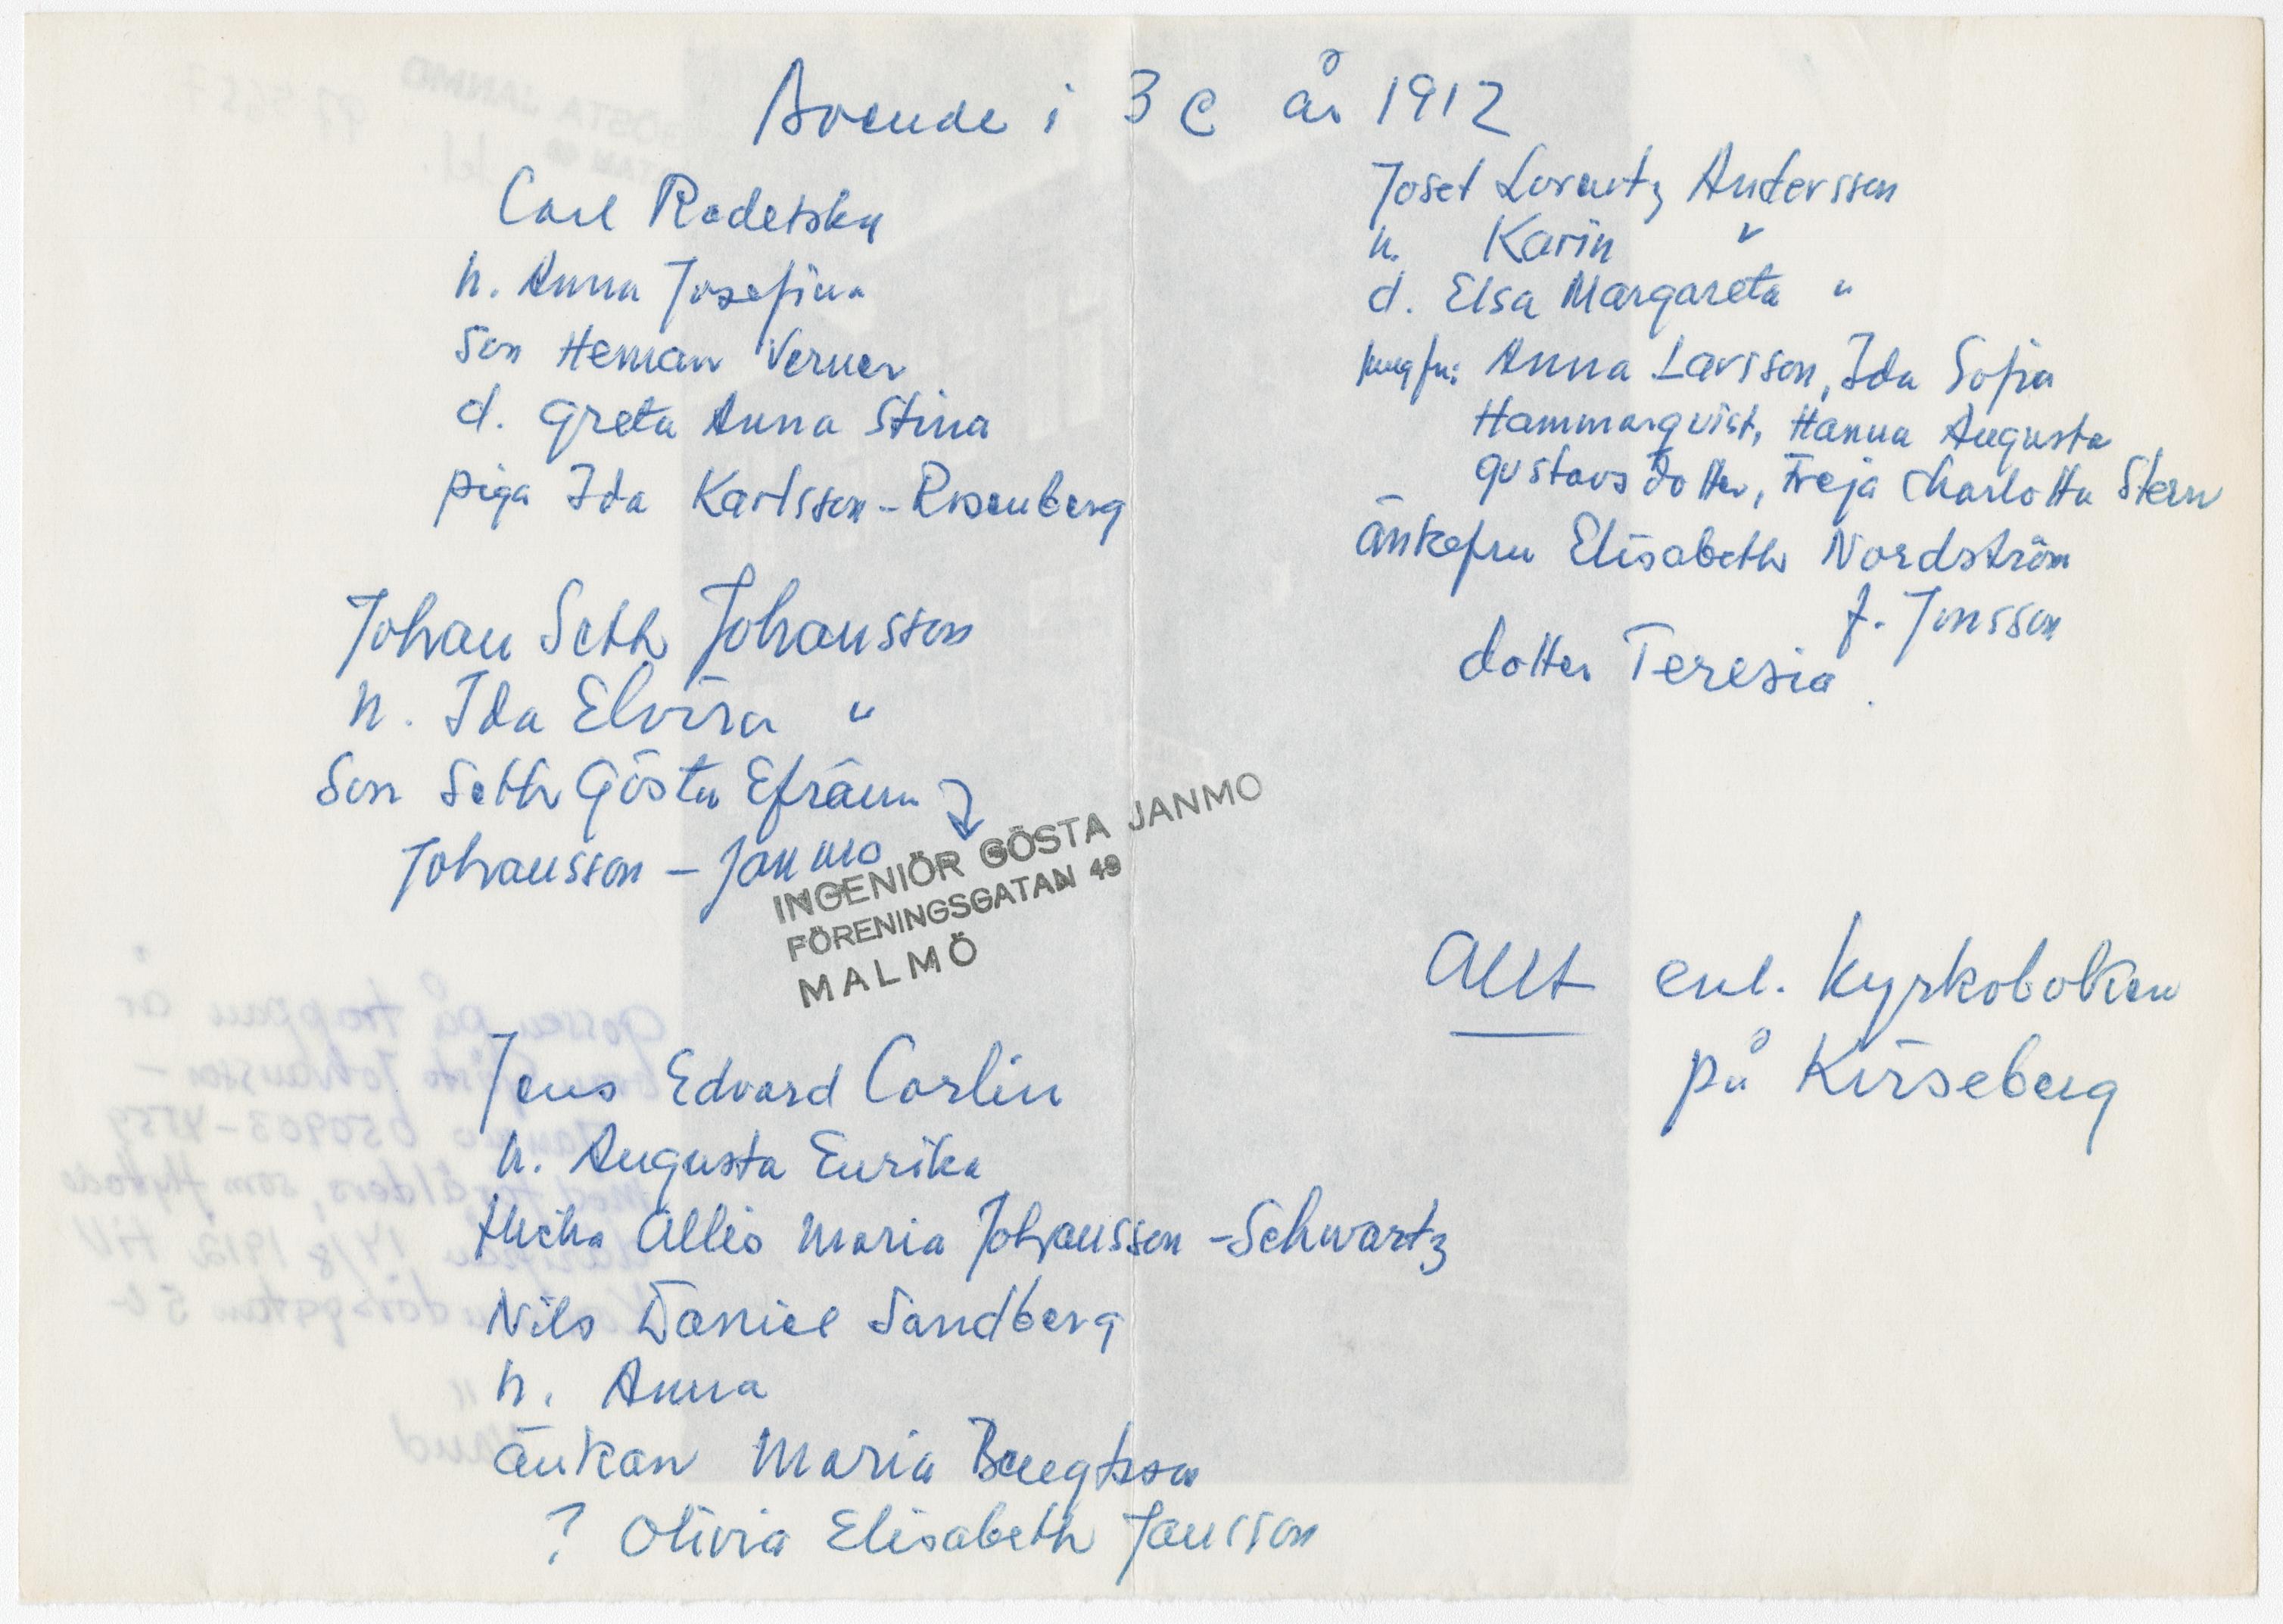 Boende i 3 C år 1912
Carl Radetsky
h. Anna Josefina
son Heman Verner
d. Greta Anna Stina
piga Ida Karlsson-Rosenberg
Johan Seth Johansson
h. Ida Elvira "
Son Seth Gösta Efraim
Johansson - Janmo
INGENIÖR GÖSTA JANMO
FÖRENINGSGATAN 49
MALMÖ
Jens Edvard Carlin
h. Augusta Eurika
Allis Maria Johansson - Schwartz
Nils Daniel Sandberg
h. Anna
änkan Maria Bengtsson
? Olivia Elisabeth Jansson
Josef Lorentz Andersson
h. Karin "
d. Elsa Margareta "
jungfru: Anna Larsson, Ida Sofia
Hammarqvist, Hanna Augusta
Gustavsdotter, Freja Charlotta Stern
änkefru Elisabeth Nordström
f. Jonsson
dotter Teresia.
Allt enl. Kyrkoboken
på Kirseberg